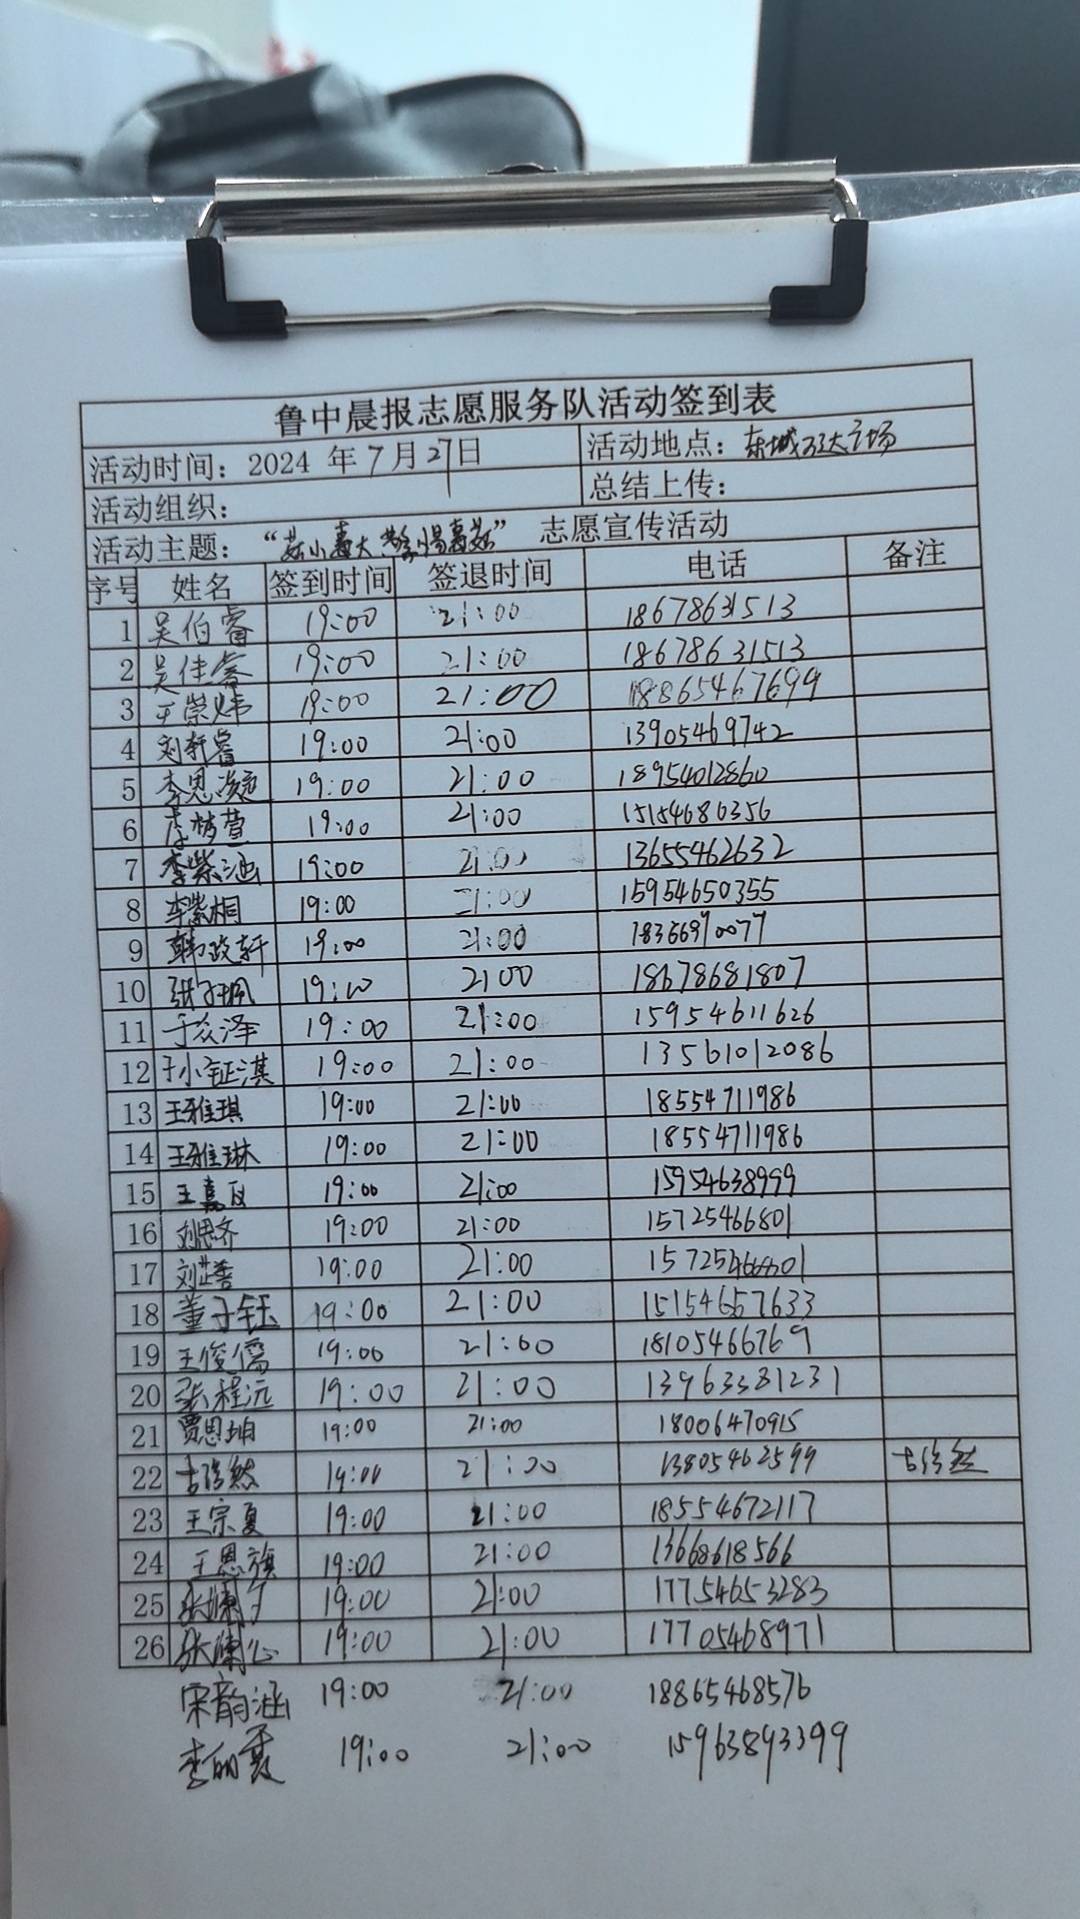 鲁中晨报志愿服务队活动签到表
活动时间：2024 年7月27日 活动地点：东城万达广场
活动组织： 总结上传：
活动主题：“ ” 志愿宣传活动
序号 姓名 签到时间 签退时间 电话 备注
1 吴伯睿 19:00 21:00 18678631513
2 吴佳睿 19:00 21:00 18678631513
3 王崇炜 19:00 21:00 18865467699
4 刘轩睿 19:00 21:00 13905469742
5 李恩凝 19:00 21:00 18954012860
6 李梦萱 19:00 21:00 15154686356
7 李紫涵 19:00 21:00 13655462632
8 李紫桐 19:00 21:00 15954650355
9 韩政轩 19:00 21:00 18366970077
10 张子珮 19:00 21:00 18678681807
11 于众泽 19:00 21:00 15954611626
12 于小钲淇 19:00 21:00 13561012086
13 王雅琪 19:00 21:00 18554711986
14 王雅琳 19:00 21:00 18554711986
15 王嘉 19:00 21:00 15954638999
16 刘思齐 19:00 21:00 15725466801
17 刘芷善 19:00 21:00 15725466801
18 董子钰 19:00 21:00 15154657633
19 王俊儒 19:00 21:00 18105466769
20 张程远 19:00 21:00 13963381231
21 贾恩坤 19:00 21:00 18006470915
22 古浩然 19:00 21:00 13805462599 古浩然
23 王宗夏 19:00 21:00 18554672117
24 王恩旗 19:00 21:00 13668618566
25 张 夕 19:00 21:00 17754653283
26 张 19:00 21:00 17705468971
宋韵涵 19:00 21:00 18865468576
李 19:00 21:00 15963893399